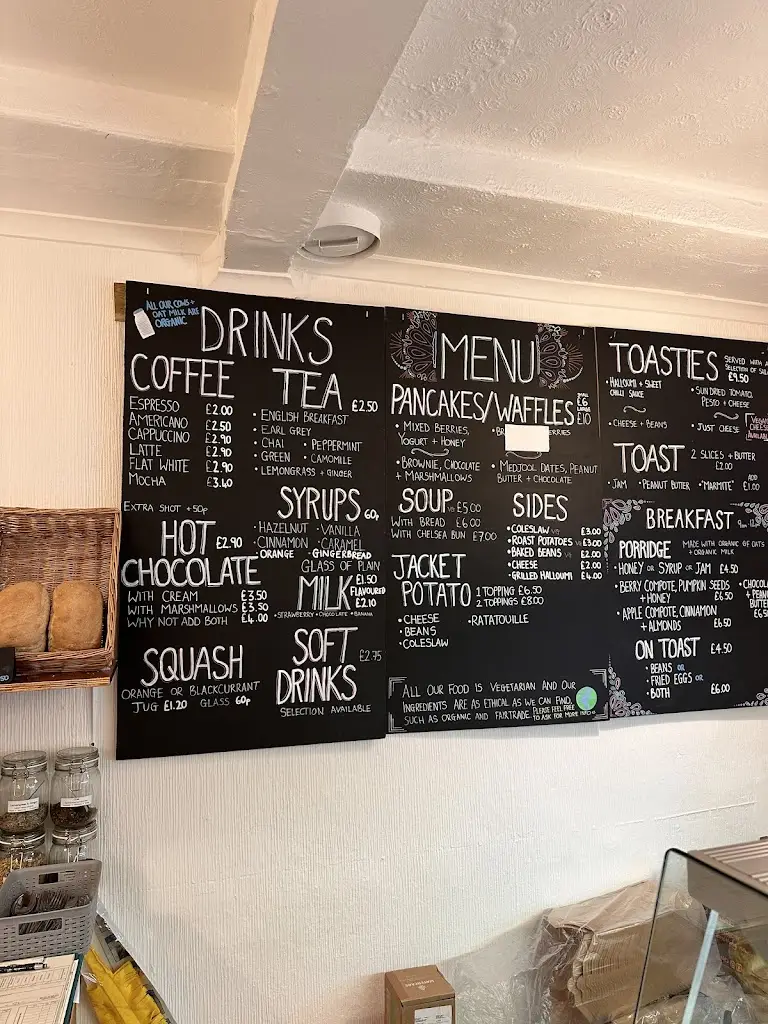 ALL OUR COWS +
OAT MILK ARE
ORGANIC
DRINKS
COFFEE
ESPRESSO £2.00
AMERICANO £2.50
CAPPUCCINO £2.90
LATTE £2.90
FLAT WHITE £2.90
MOCHA £3.40
EXTRA SHOT +50p
TEA £2.50
• ENGLISH BREAKFAST
• EARL GREY
• CHAI • PEPPERMINT
• GREEN • CAMOMILE
• LEMONGRASS + GINGER
SYRUPS 60p
• HAZELNUT • VANILLA
• CINNAMON • CARAMEL
ORANGE • GINGERBREAD
HOT £2.90
CHOCOLATE
WITH CREAM £3.50
WITH MARSHMALLOWS £3.50
WHY NOT ADD BOTH £4.00
GLASS OF PLAIN
£1.50
MILK FLAVOURED
£2.10
• STRAWBERRY • CHOCOLATE • BANANA
SQUASH
ORANGE OR BLACKCURRANT
JUG £1.20 GLASS 60p
SOFT £2.75
DRINKS
SELECTION AVAILABLE
MENU
PANCAKES/WAFFLES
£6
LARGE
£10
• MIXED BERRIES,
YOGURT + HONEY
• BROWNIE, CHOCOLATE
+ MARSHMALLOWS
• MEDJOOL DATES, PEANUT
BUTTER + CHOCOLATE
SOUP £5.00
WITH BREAD £6.00
WITH CHELSEA BUN £7.00
SIDES
• COLESLAW £3.00
• ROAST POTATOES £3.00
• BAKED BEANS £2.00
• CHEESE £2.00
• GRILLED HALLOUMI £4.00
JACKET
POTATO
1 TOPPING £6.50
2 TOPPINGS £8.00
• CHEESE
• BEANS
• COLESLAW
• RATATOUILLE
ALL OUR FOOD IS VEGETARIAN AND OUR
INGREDIENTS ARE AS ETHICAL AS WE CAN FIND,
SUCH AS ORGANIC AND FAIRTRADE. PLEASE FEEL FREE
TO ASK FOR MORE INFO
TOASTIES
SERVED WITH A
SELECTION OF
£9.50
• HALLOUMI + SWEET
CHILLI SAUCE
• SUNDRIED TOMATO,
PESTO + CHEESE
• CHEESE + BEANS
• JUST CHEESE
VEGAN
CHEESE
TOAST
2 SLICES + BUTTER
£2.00
• JAM • PEANUT BUTTER • "MARMITE" ADD
£1.00
BREAKFAST
PORRIDGE
MADE WITH ORGANIC GF OATS
+ ORGANIC MILK
• HONEY OR SYRUP OR JAM £4.50
• BERRY COMPOTE, PUMPKIN SEEDS
+ HONEY £6.50
• APPLE COMPOTE, CINNAMON
+ ALMONDS £6.50
ON TOAST £4.50
• BEANS OR
• FRIED EGGS OR
• BOTH £6.00